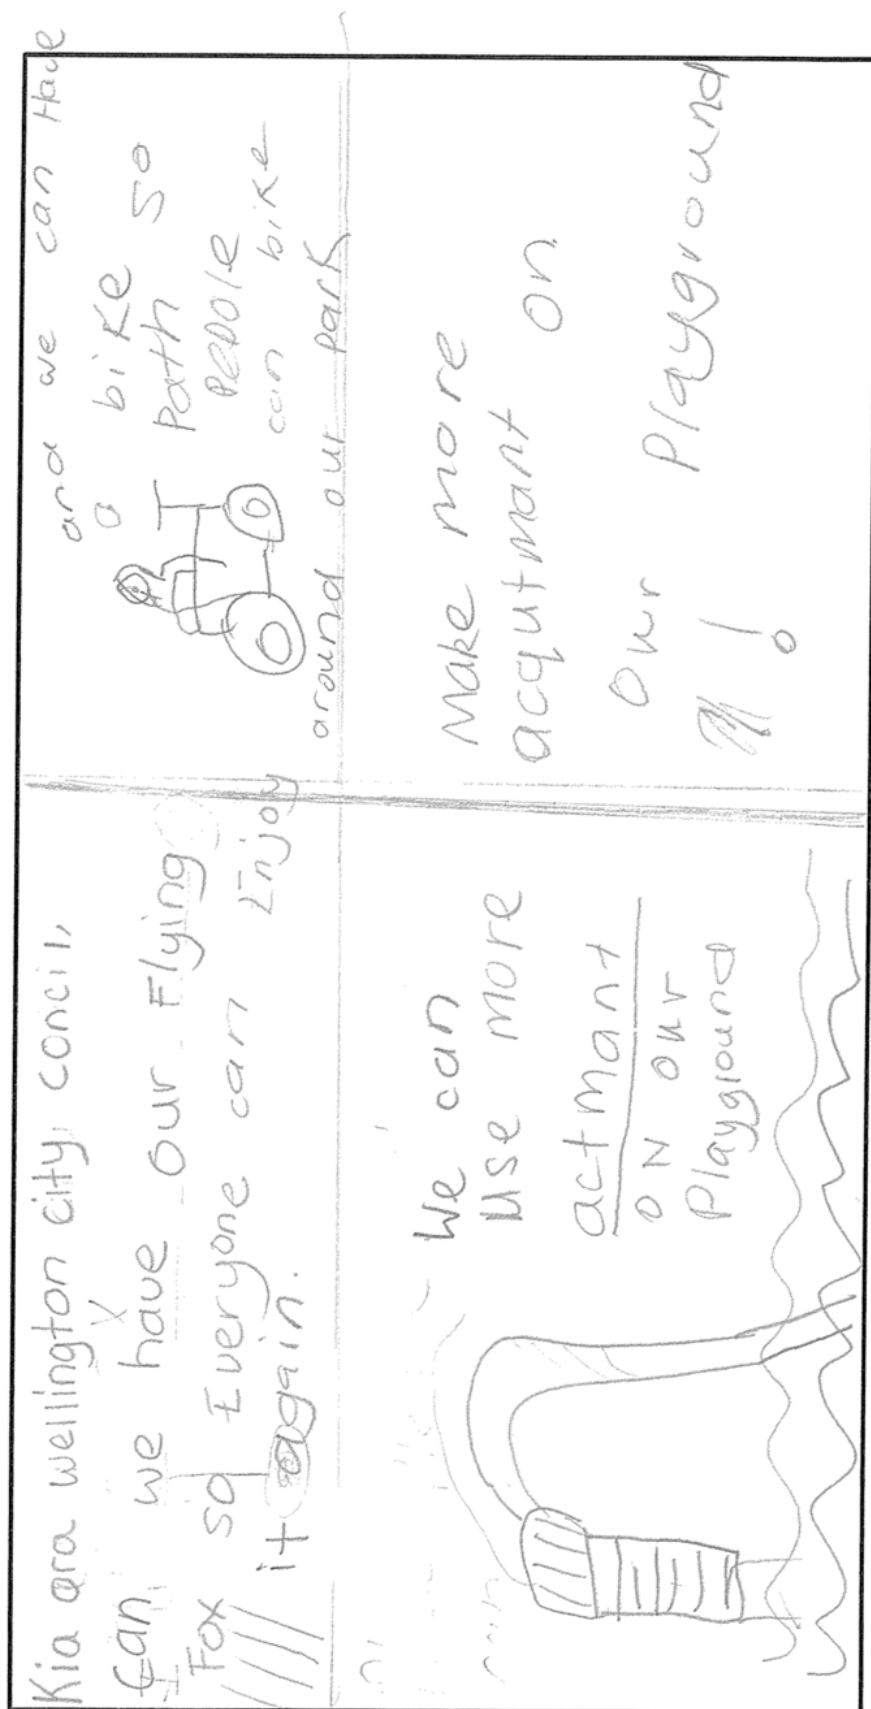 Kia ora wellington city concil,
can we have our Flying
Fox so Everyone can Enjoy
it again.
and we can Have
a bike so
Path
PePole
can bike
around our park
We can
Use more
actmant
ON our
Playground
Make more
acqutmant on
our Playground
!